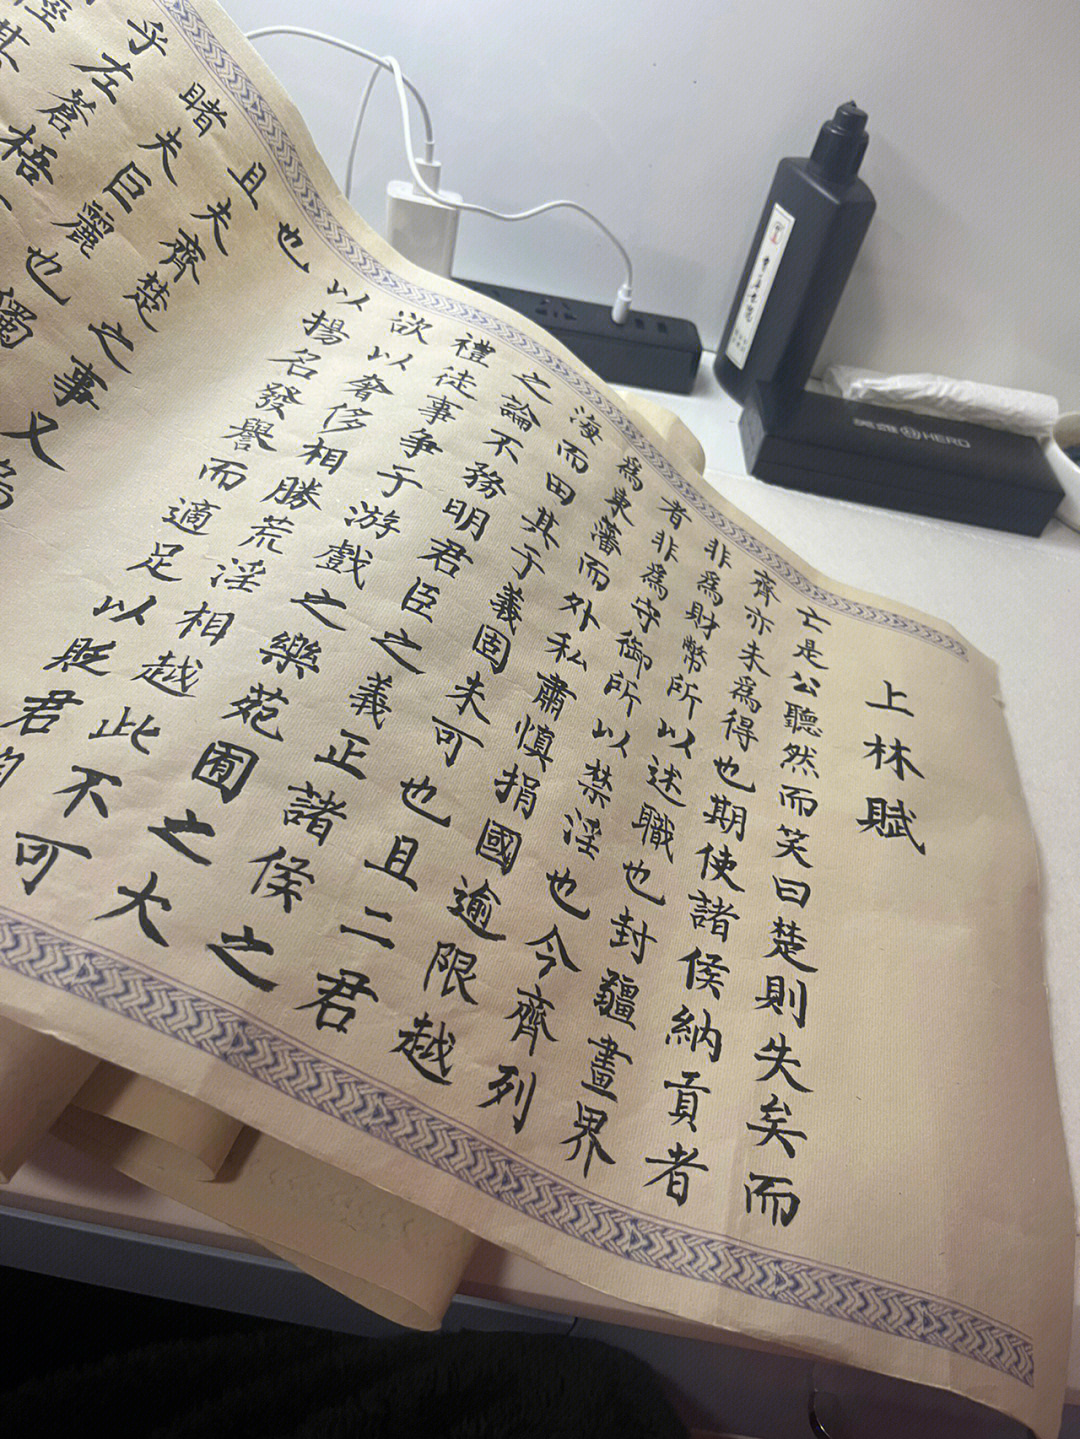 上林賦
亡是公聽然而笑曰楚則失矣而
齊亦未為得也期使諸侯納貢者
非為財幣所以述職也封疆畫界
者非為守御所以禁淫也今齊列
為東藩而外私肅慎捐國逾限越
海而田其于義固未可也且二君
之論不務明君臣之義正諸侯之
禮徒事爭于游戲之樂苑囿之大
欲以奢侈相勝荒淫相越此不可
以揚名發譽而適足以貶君自
也
且夫齊楚之事又烏
睹夫巨麗也獨
乎左蒼梧
徑其
英雄 HERO